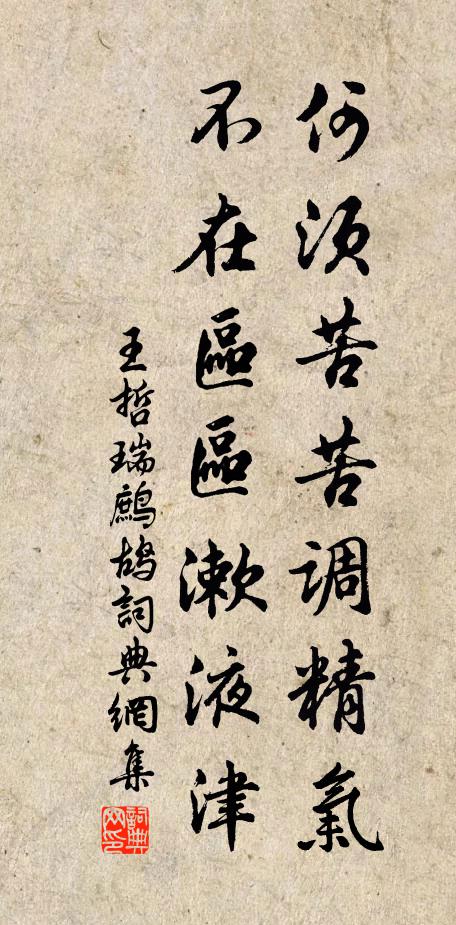 何須苦苦調精氣
不在區區漱液津
王哲瑞鷓鴣詞典網集
詞典網印